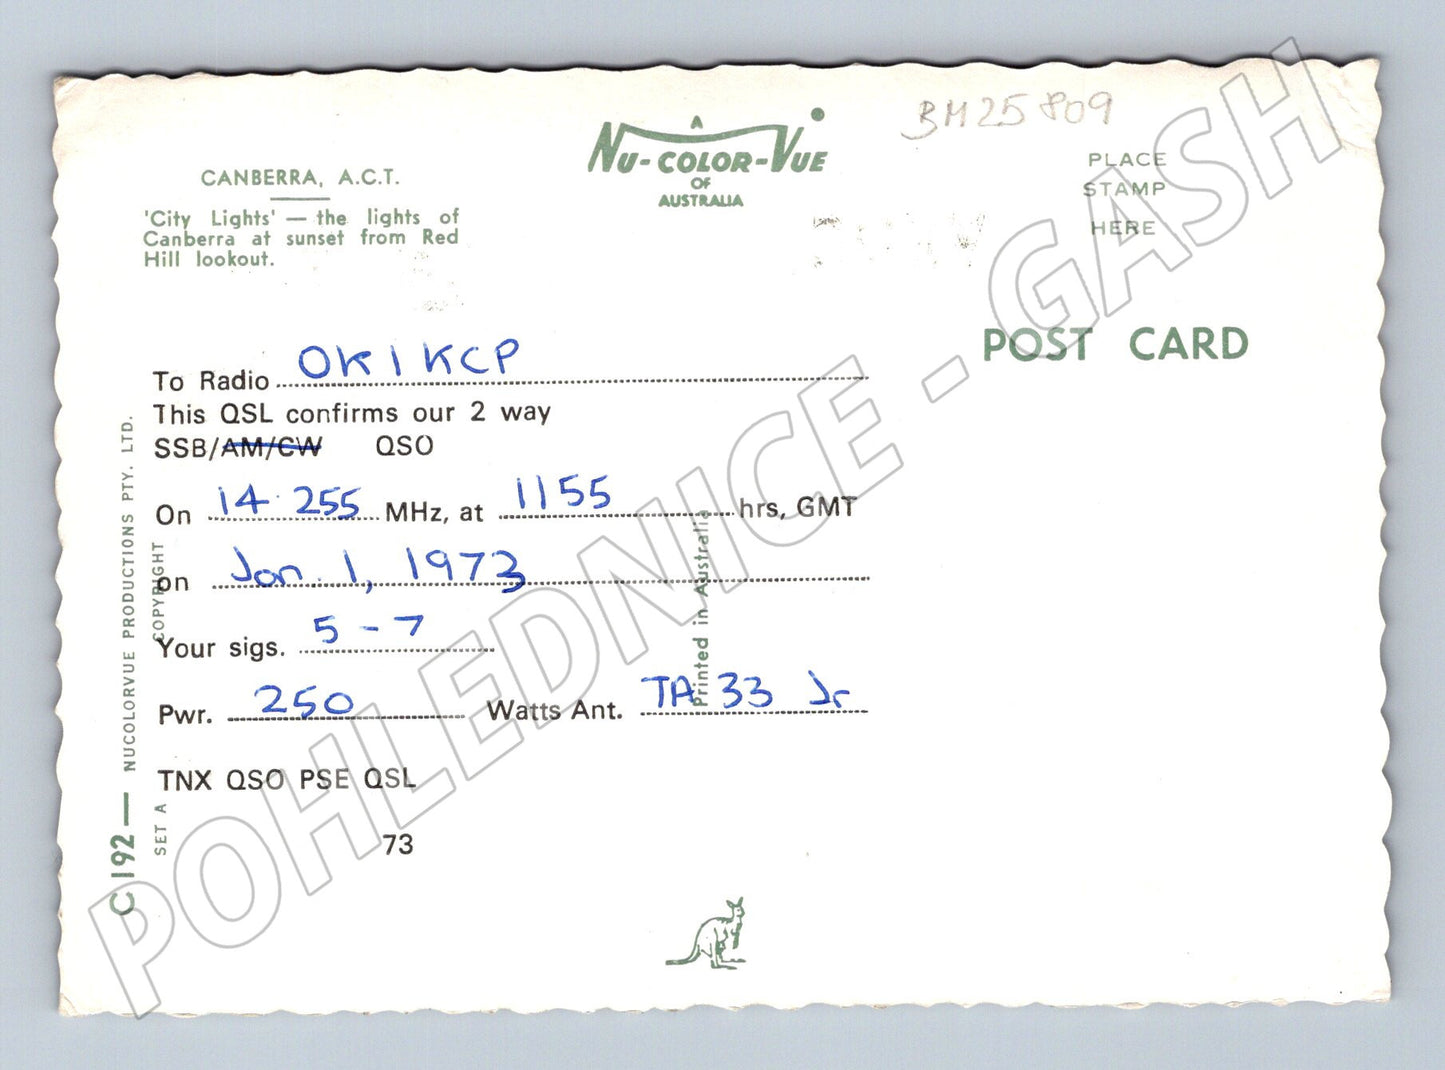 BM25809
A
NU-COLOR-VUE
OF
AUSTRALIA
PLACE
STAMP
HERE
CANBERRA, A.C.T.
'City Lights' — the lights of
Canberra at sunset from Red
Hill lookout.
POST CARD
To Radio OK1KCP
This QSL confirms our 2 way
SSB/AM/CW QSO
On 14.255 MHz, at 1155 hrs, GMT
on Jan 1, 1973
Your sigs. 5-7
Pwr. 250 Watts Ant. TA 33 Jr
TNX QSO PSE QSL
73
C 192 — NUCOLORVUE PRODUCTIONS PTY. LTD.
SET A COPYRIGHT
Printed in Australia
POHLEDNICE - GASH